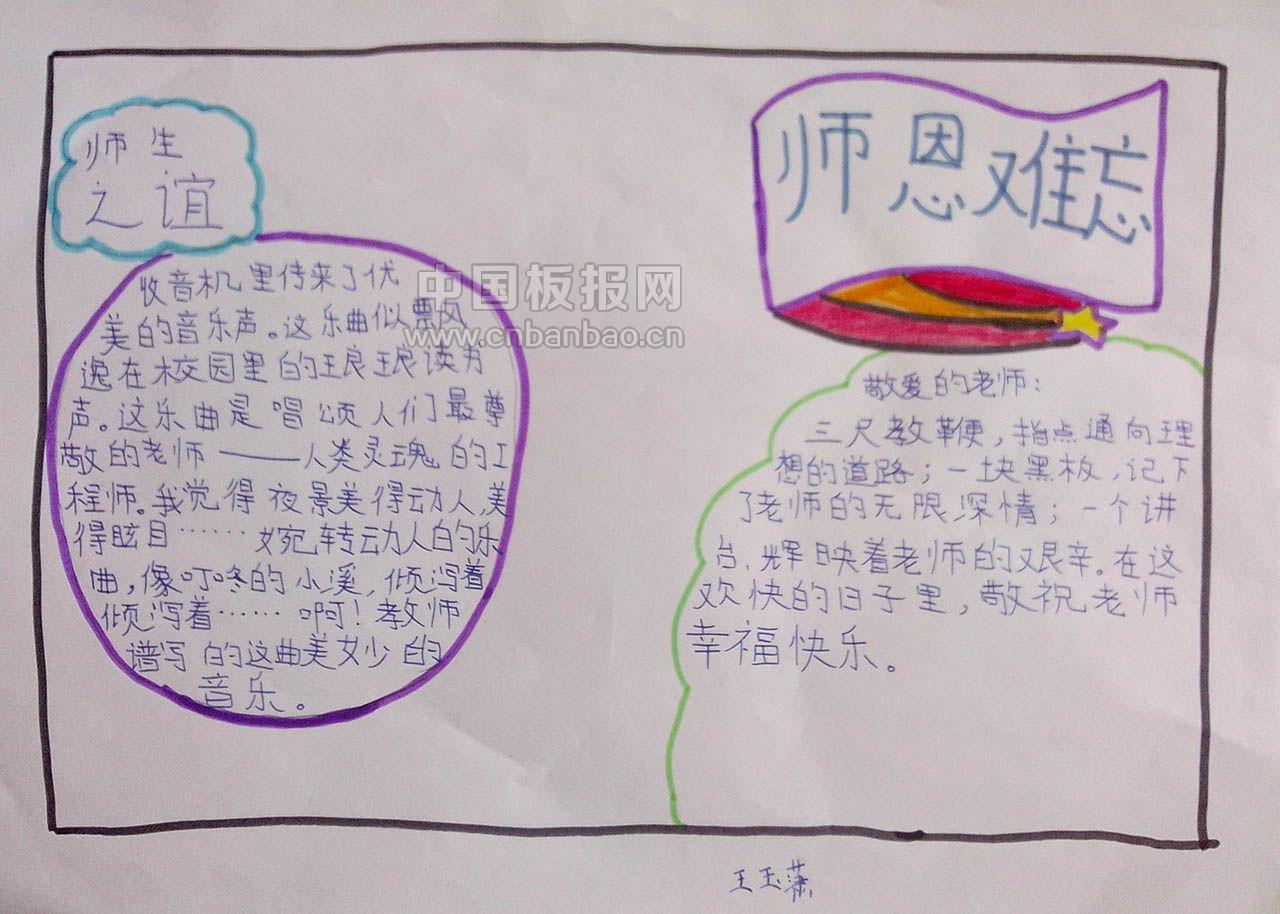 师生
之谊
收音机里传来了优
美的音乐声。这乐曲似飘风,
逸在校园里的琅琅读书
声。这乐曲是唱颂人们最尊
敬的老师——人类灵魂的工
程师。我觉得夜景美得动人,美
得眩目……婉转动人的乐
曲,像叮咚的小溪,倾泻着
倾泻着……啊!教师
谱写的这曲美妙的
音乐。
师恩难忘
敬爱的老师:
三尺教鞭,指点通向理
想的道路;一块黑板,记下
了老师的无限深情;一个讲
台,辉映着老师的艰辛。在这
欢快的日子里,敬祝老师
幸福快乐。
中国板报网
www.cnbanbao.cn
王玉